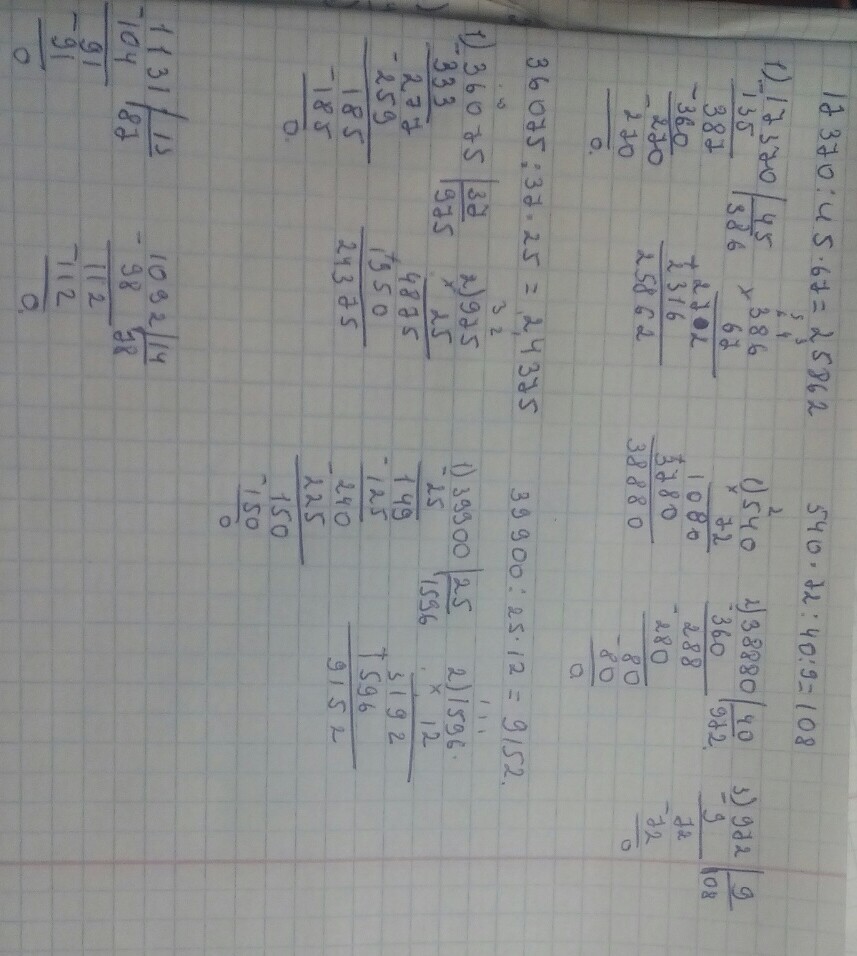 17370:45·67=25862
1) 17370 | 45
-135 | 386
387
-360
270
-270
0
386
× 67
2702
+2316
25862
540·72:40:9=108
1) 540
× 72
1080
+3780
38880
2) 38880 | 40
-360 | 972
288
-280
80
-80
0
3) 972 | 9
-9 | 108
72
-72
0
36075:37·25=24375
1) 36075 | 37
-333 | 975
277
-259
185
-185
0
2) 975
× 25
4875
+1950
24375
39900:25·12=9152
1) 39900 | 25
-25 | 1596
149
-125
240
-225
150
-150
0
2) 1596
× 12
3192
+1596
9152
1131 | 13
-104 | 87
91
-91
0
1092 | 14
-98 | 78
112
-112
0